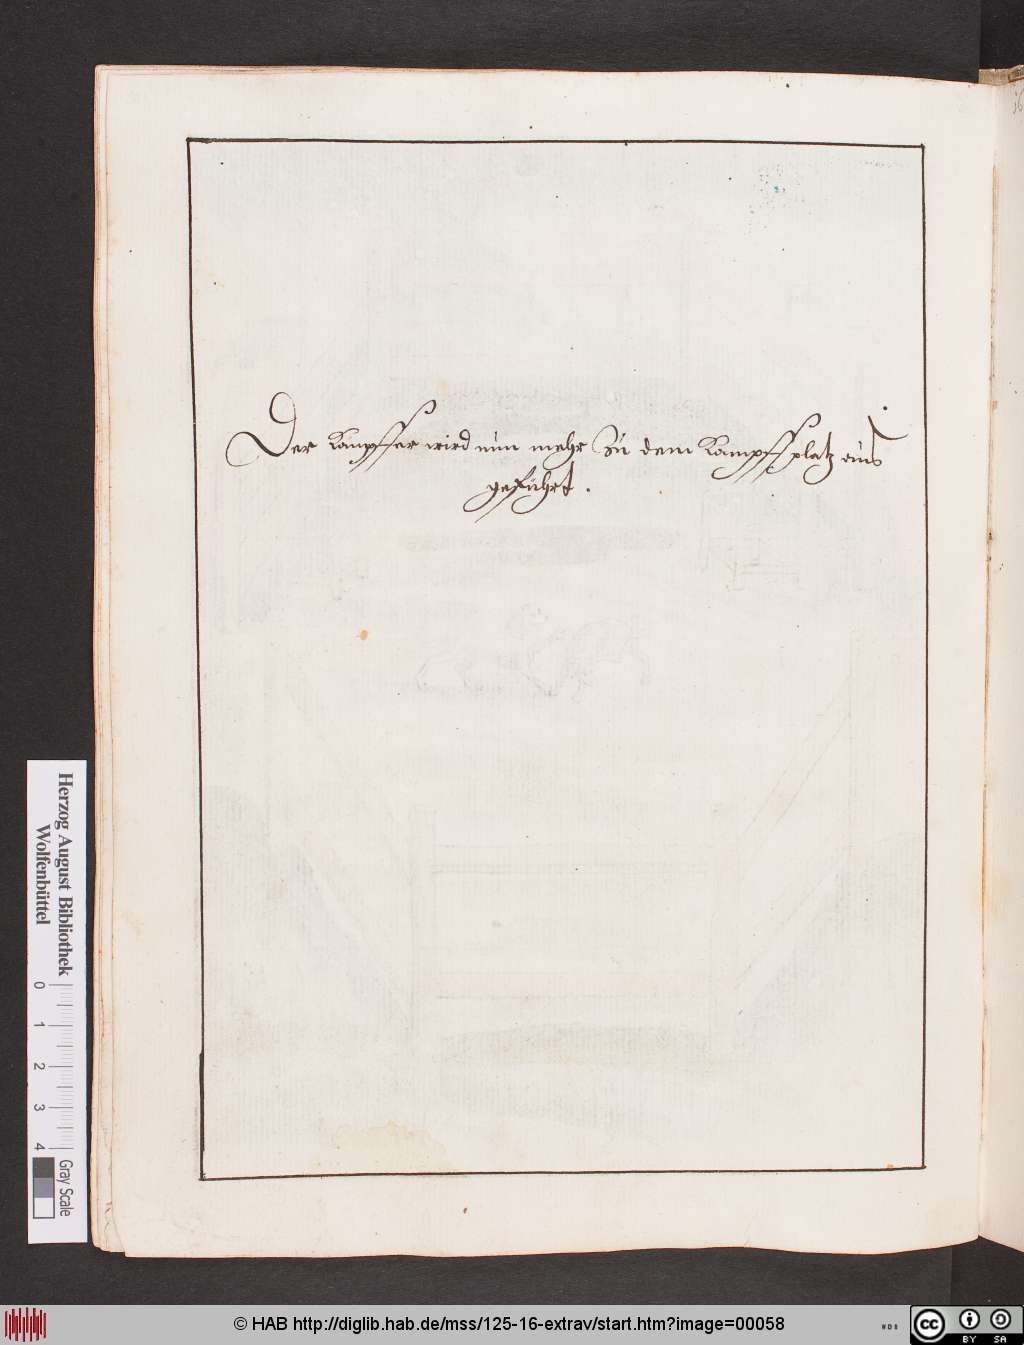 Der Kämpffer wird nun mehr Zu dem Kampffplatz
geführt.
Herzog August Bibliothek
Wolfenbüttel
0 1 2 3 4
Gray Scale
© HAB http://diglib.hab.de/mss/125-16-extrav/start.htm?image=00058
cc BY SA